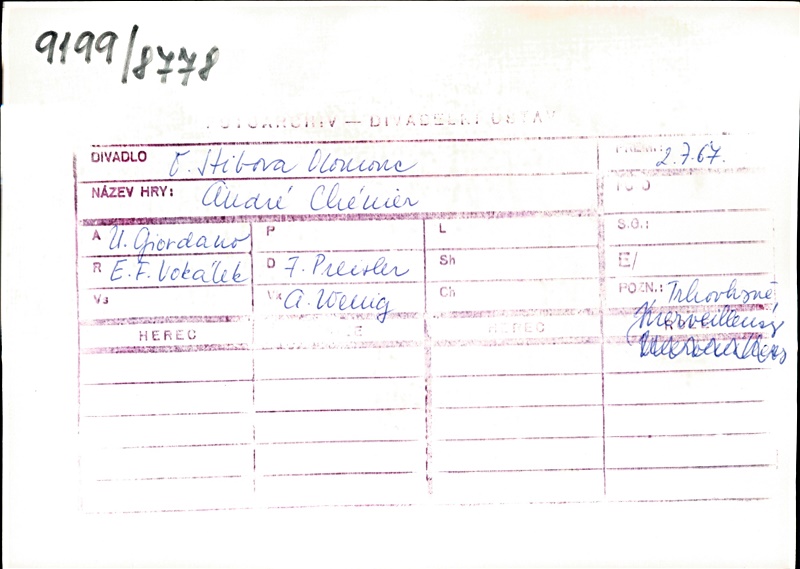 9199/8778
FOTOARCHIV — DIVADELNÍ ÚSTAV
DIVADLO O. Stibora Olomouc
PREM.: 2.7.67.
NÁZEV HRY: André Chénier
FOTO
A U. Giordano P L S.O.:
R E. F. Vokálek D F. Preisler Sh E/
Vs Vk A. Wenig Ch POZN.: Trhovkyně,
Merveilleusy
HEREC HEREC